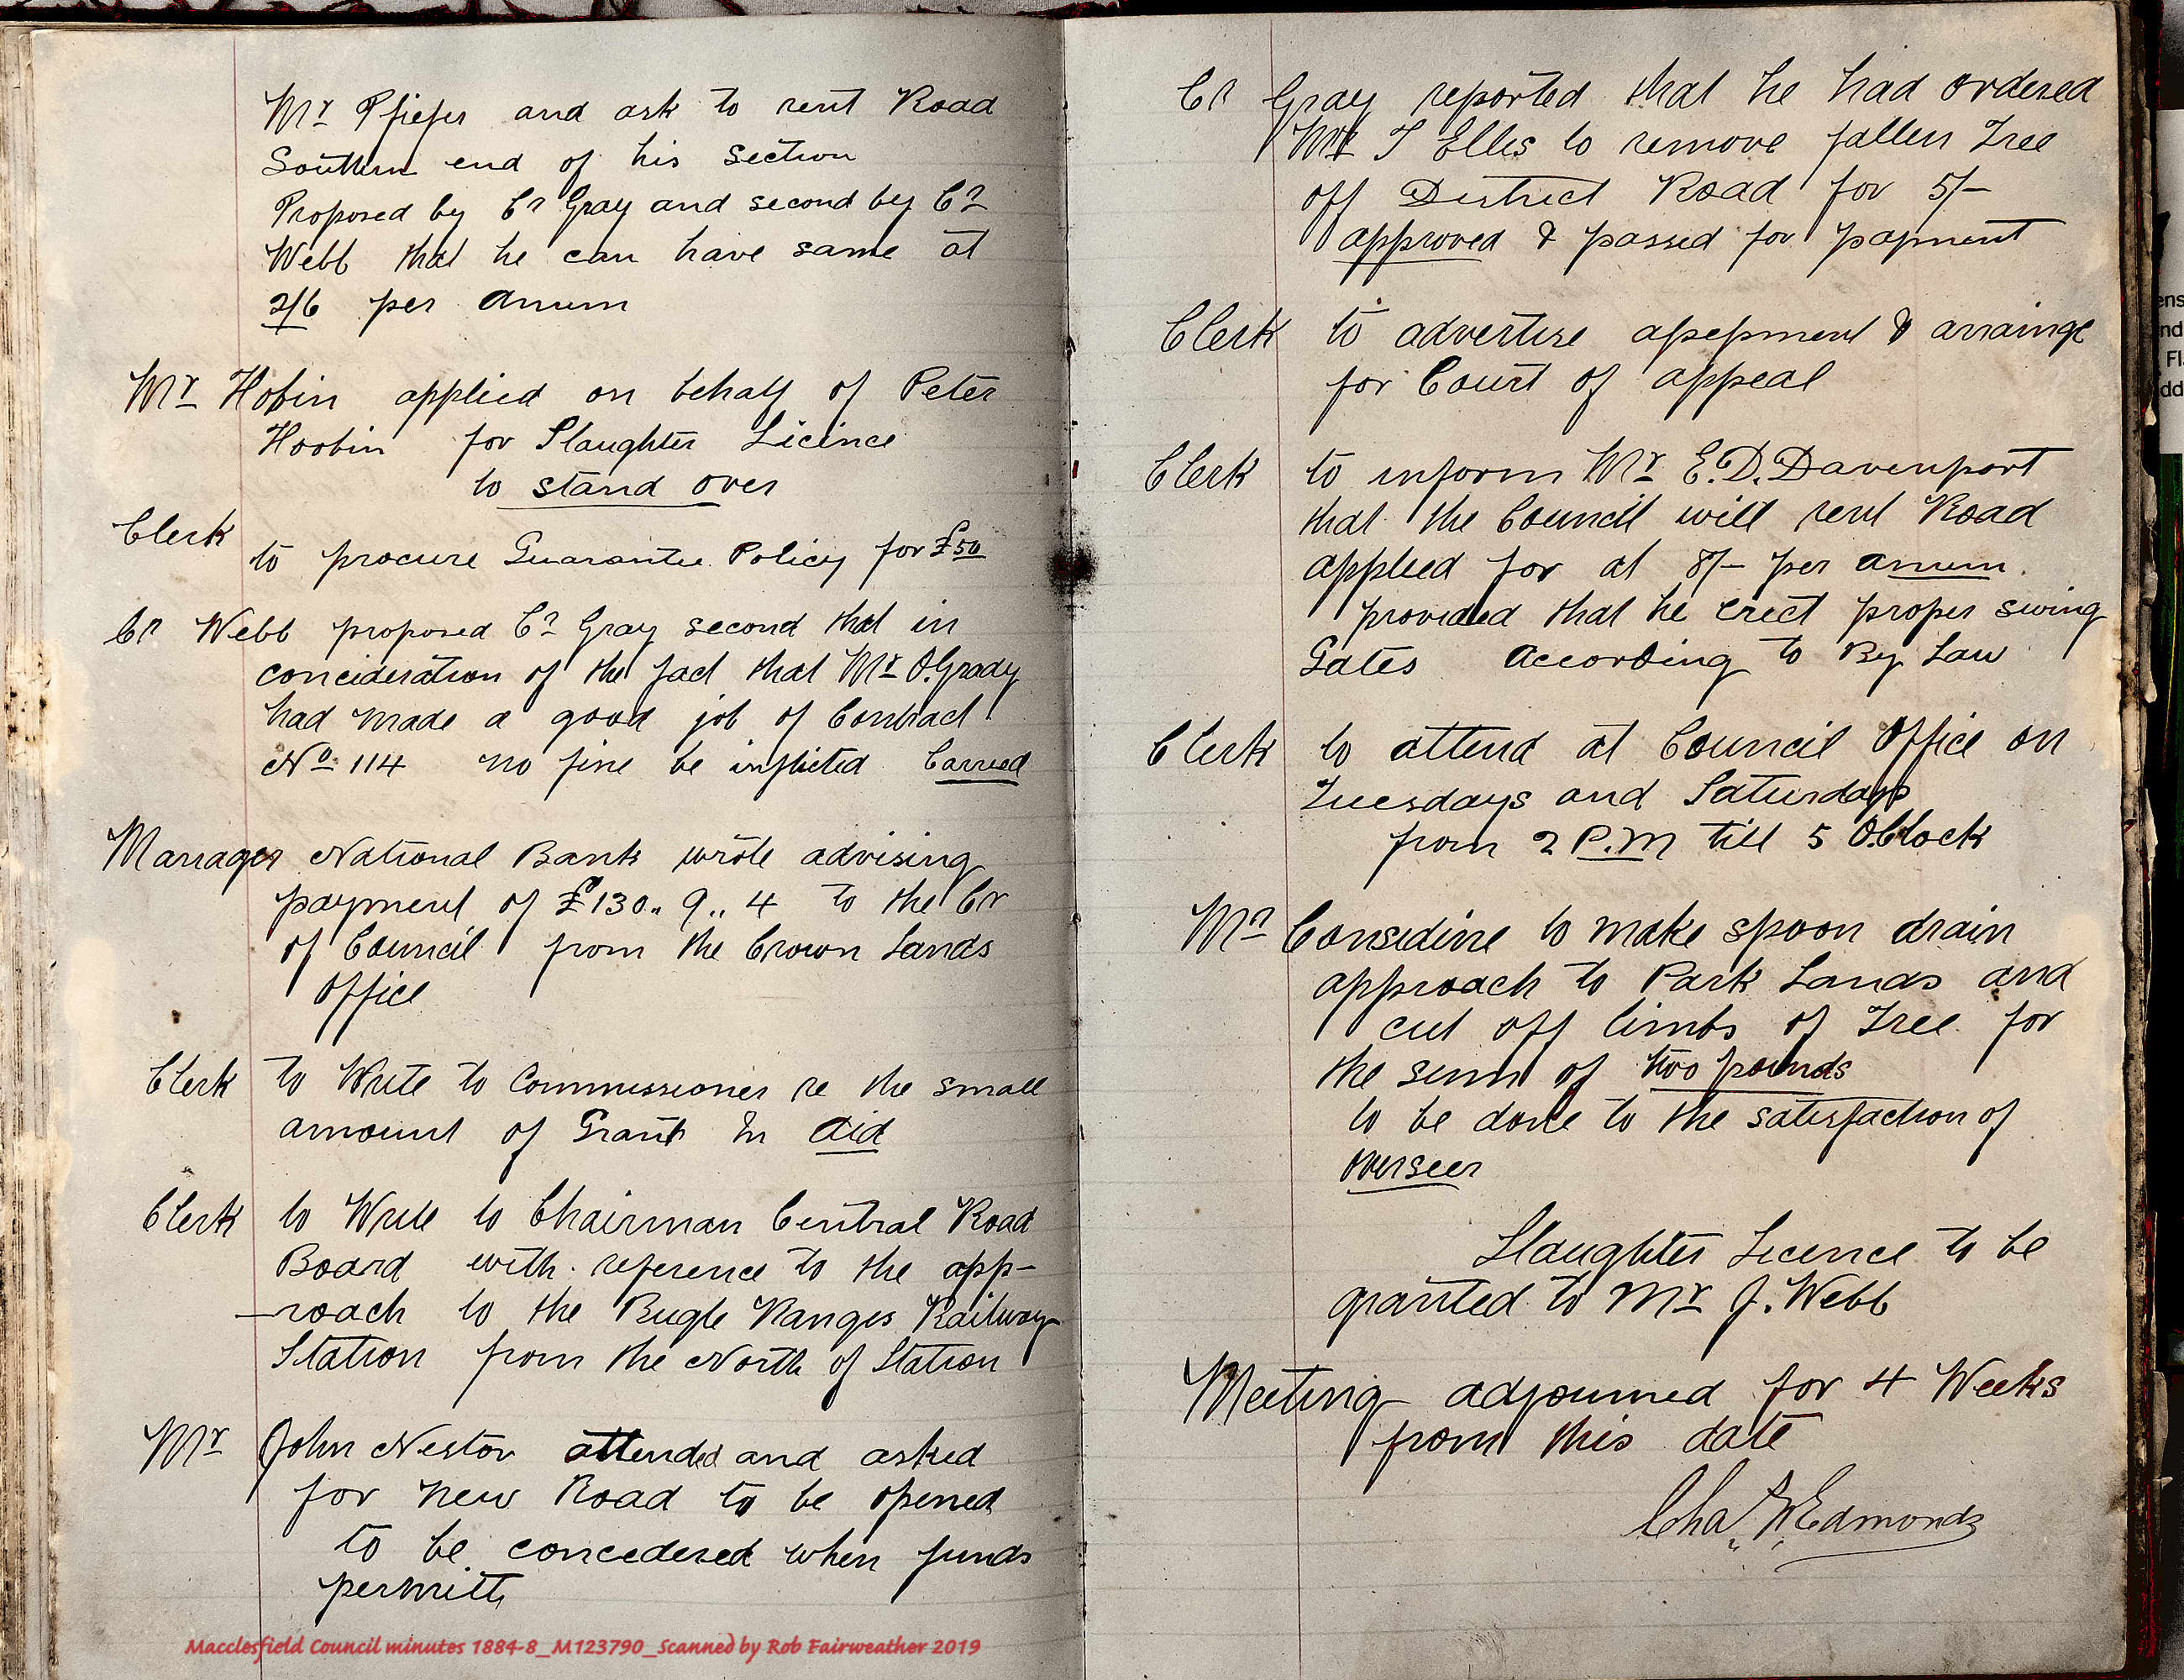 Mr Pfiefer and ask to rent Road
Southern end of his Section
Proposed by Cr Gray and second by Cr
Webb that he can have same at
2/6 per Anum
Mr Hobin applied on behalf of Peter
Hoobin for Slaughter Licince
to stand over
Clerk
to procure Guarantee Policy for £50
Cr Webb proposed Cr Gray second that in
concideration of the fact that Mr O.Grady
had made a good job of Contract
No 114 no fine be inflicted Carried
Manager National Bank wrote advising
payment of £130,, 9,, 4 to the Cr
of Council from the Crown Lands
Office
Clerk to Write to Commissioner re the small
amount of Grant In Aid
Clerk to Write to Chairman Central Road
Board with reference to the app-
-roach to the Bugle Ranges Railway
Station from the North of Station
Mr John Nestor attended and asked
for new Road to be opened
to be concedered when funds
permitts
Macclesfield Council minutes 1884-8_M123790_Scanned by Rob Fairweather 2019
Cr Gray reported that he had ordered
Mr T Ellis to remove fallen Tree
off District Road for 5/-
approved & passed for payment
Clerk to advertise assessment & arrainge
for Court of appeal
Clerk to inform Mr E.D.Davenport
that the Council will rent Road
applied for at 8/- per anum.
provided that he erect proper swing
Gates According to By Law
Clerk to attend at Council Office on
Tuesdays and Saturdays
from 2 P.M till 5 O.Clock
Mr Considine to make spoon drain
approach to Park Lands and
cut off limbs of Tree for
the sum of two pounds
to be done to the satisfaction of
overseer
Slaughter Licence to be
granted to Mr J. Webb
Meeting adjourned for 4 Weeks
from this date
Chas Edmonds